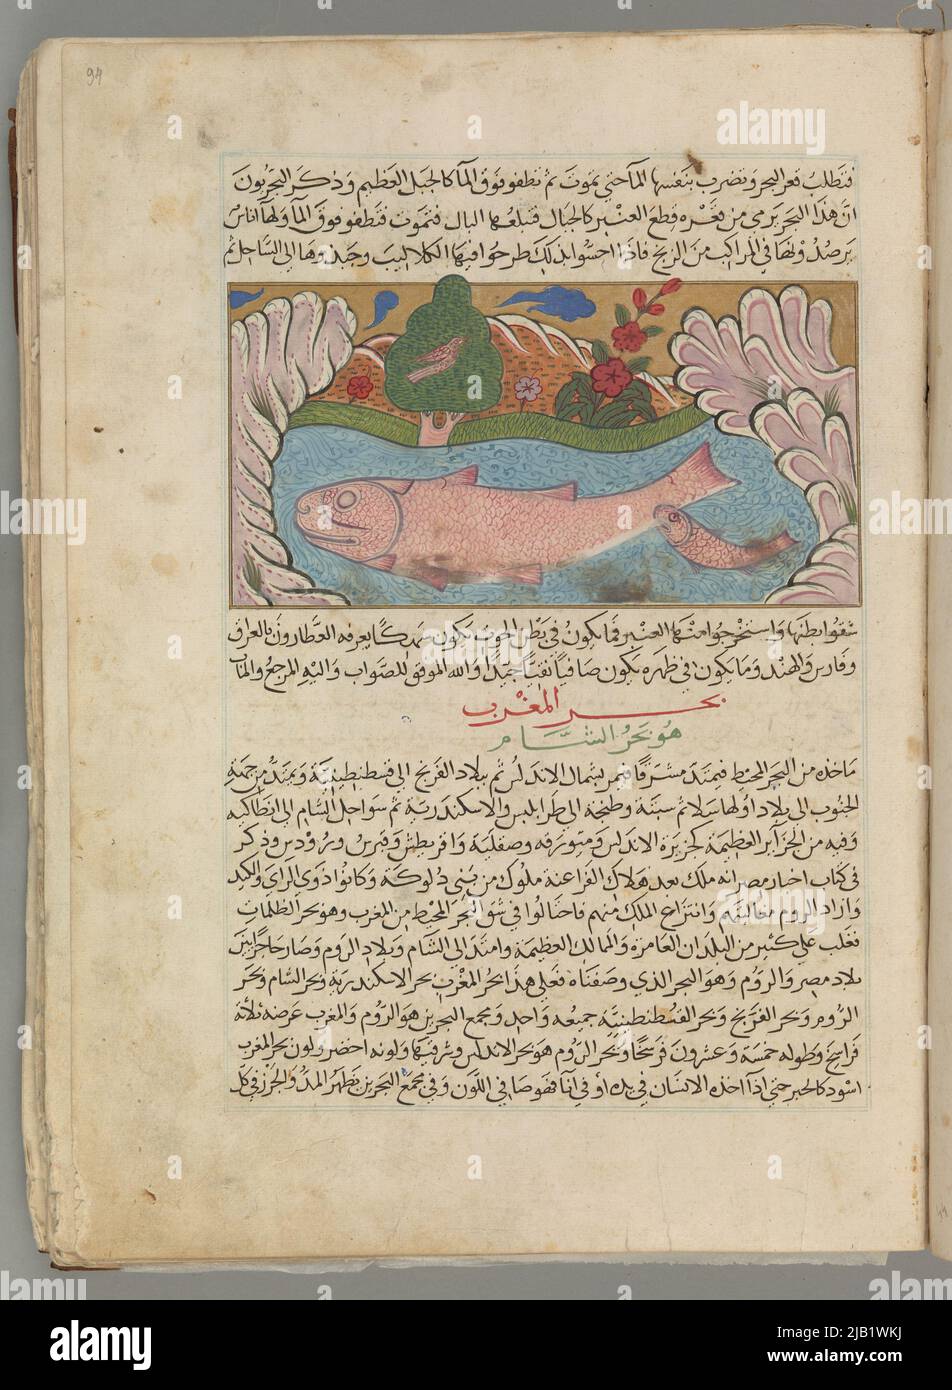 94
فتطلب قعر البحر وتضرب بنفسها الماء حتي يموت ثم تطفو فوق الماء كالجبل العظيم وذكر البحريون
ان هذا البحر يرمي من قعره قطع العنبر كالجبال فتبلعها البال فتموت فتطفو فوق الماء ولها اناس
يرصدونها في المراكب من الزنج فاذا احسوا بذلك طرحوا فيها الكلاليب وجذبوها الى الساحل ثم
شقوا بطنها واستخرجوا منها العنبر فما يكون في بطن الحوت يكون يعرفه العطارون بالعراق
وفارس والهند وما يكون في ظهره يكون صافيا نقيا جيدا والله الموفق للصواب واليه المرجع والماب
بحر المغرب
هو بحر الشام
ماخذه من البحر المحيط فيمتد مشرقا فيمر بشمال الاندلس ثم ببلاد الفرنج الى قسطنطينية ويمتد من جهة
الجنوب الى بلاد اولها سلا ثم سبتة وطنجة الى طرابلس والاسكندرية ثم سواحل الشام الى انطاكيه
وفيه من الجزاير العظيمة كجزيرة الاندلس وميورقه وصقلية واقريطش وقبرس ورودس وذكر
في كتاب اخبار مصر انه ملك بعد هلاك الفراعنة ملوك من بني دلوكة وكانوا ذوي الراي والكيد
واراد الروم مغالبتهم وانتزاع الملك منهم فاحتالوا في شق البحر المحيط من المغرب وهو بحر الظلمات
فغلب علي كثير من البلدان العامرة والممالك العظيمة وامتد الى الشام وبلاد الروم وصار حاجزا بين
بلاد مصر والروم وهو البحر الذي وصفناه فعلي هذا بحر المغرب بحر الاسكندرية وبحر الشام وبحر
الروم وبحر الفرنج وبحر القسطنطينية جميعه واحد ومجمع البحرين هو الروم والمغرب عرضه ثلاثة
فراسخ وطوله خمسة وعشرون فرسخا وبحر الروم هو بحر الاندلس وشرقيها ولونه اخضر ولون بحر المغرب
اسود كالحبر حتى اذا اخذه الانسان في يده او في انآ فهو صافي اللون وفي مجمع البحرين تظهر المد والجزر في كل
alamy
Image ID: 2JB1WKJ
www.alamy.com